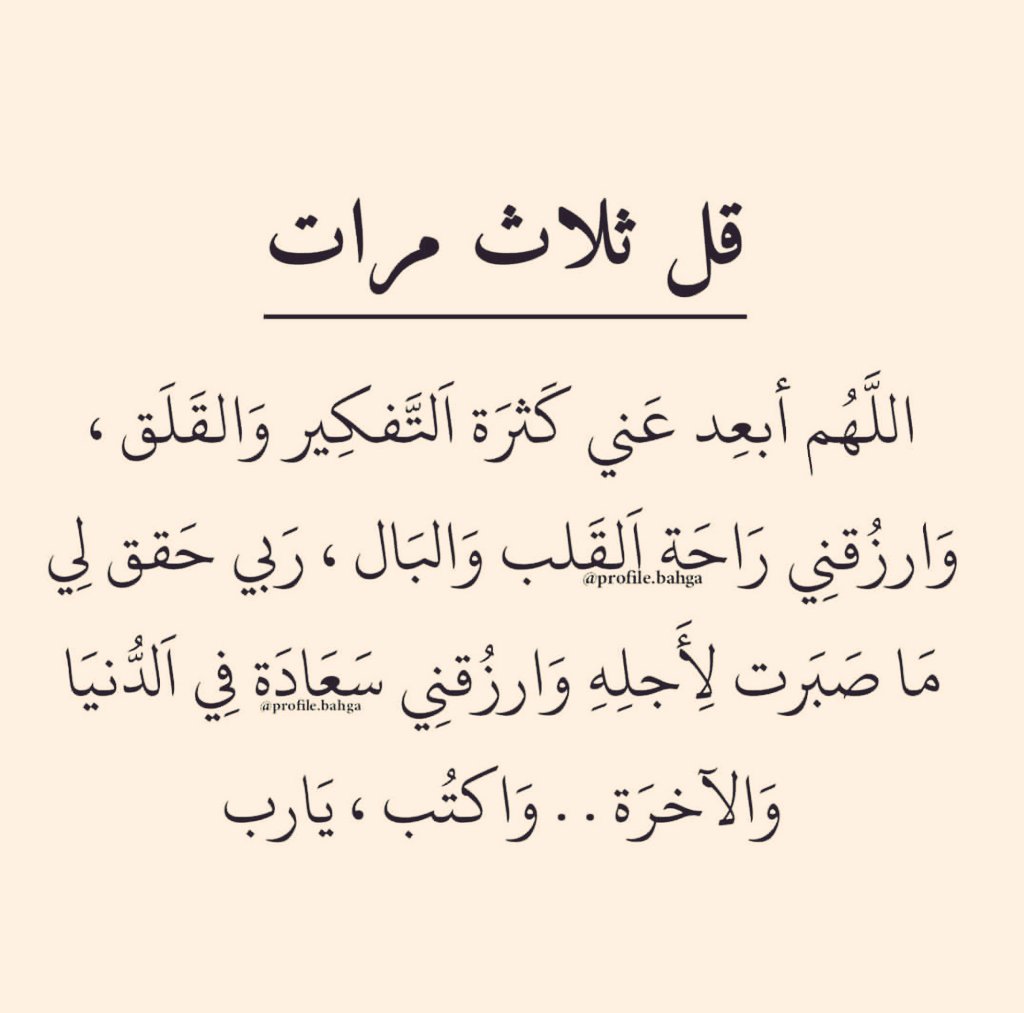 قل ثلاث مرات
اللَّهُم أبعِد عَني كَثرَة اَلتَّفكِير وَالقَلَق ،
وَارزُقنِي رَاحَة اَلقَلب وَالبَال ، رَبي حَقق لِي
@profile.bahga
مَا صَبَرت لِأَجلِهِ وَارزُقنِي سَعَادَة فِي اَلدُّنيَا
@profile.bahga
وَالآخرَة . . وَاكتُب ، يَارب